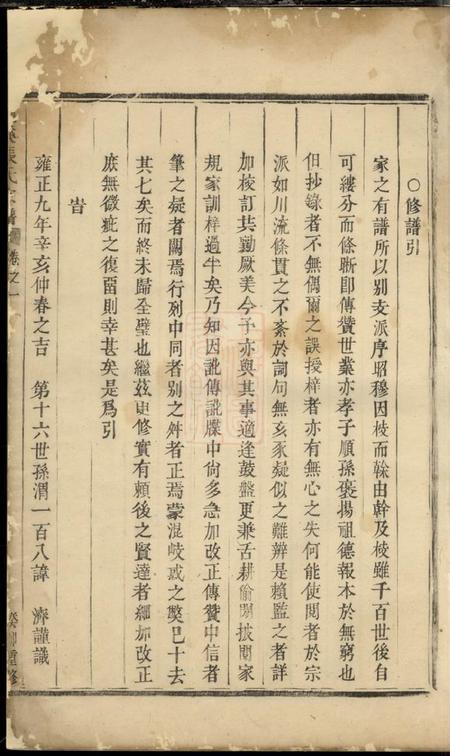 ○修譜引
家之有譜所以別支派序昭穆因枝而榦由幹及枝雖千百世後自
可縷分而條晰即傳贊世業亦孝子順孫褒揚祖德報本於無窮也
但抄錄者不無偶爾之誤授梓者亦有無心之失何能使閱者於宗
派如川流條貫之不紊於詞句無亥豕疑似之難辨是賴監之者詳
加校訂共勷厥美今予亦與其事適逢鼓盤更兼舌耕偷閒披閱家
規家訓梓過半矣乃知因訛傳訛牒中尙多急加改正傳贊中信者
筆之疑者闕焉行列中同者別之舛者正焉蒙混岐惑之獘已十去
其七矣而終未歸全璧也繼茲更修實有賴後之賢達者細加改正
庶無微疵之復畱則幸甚矣是爲引
旹
雍正九年辛亥仲春之吉 第十六世孫渭一百八諱 濟謹識
氏宗譜 卷之一
重修